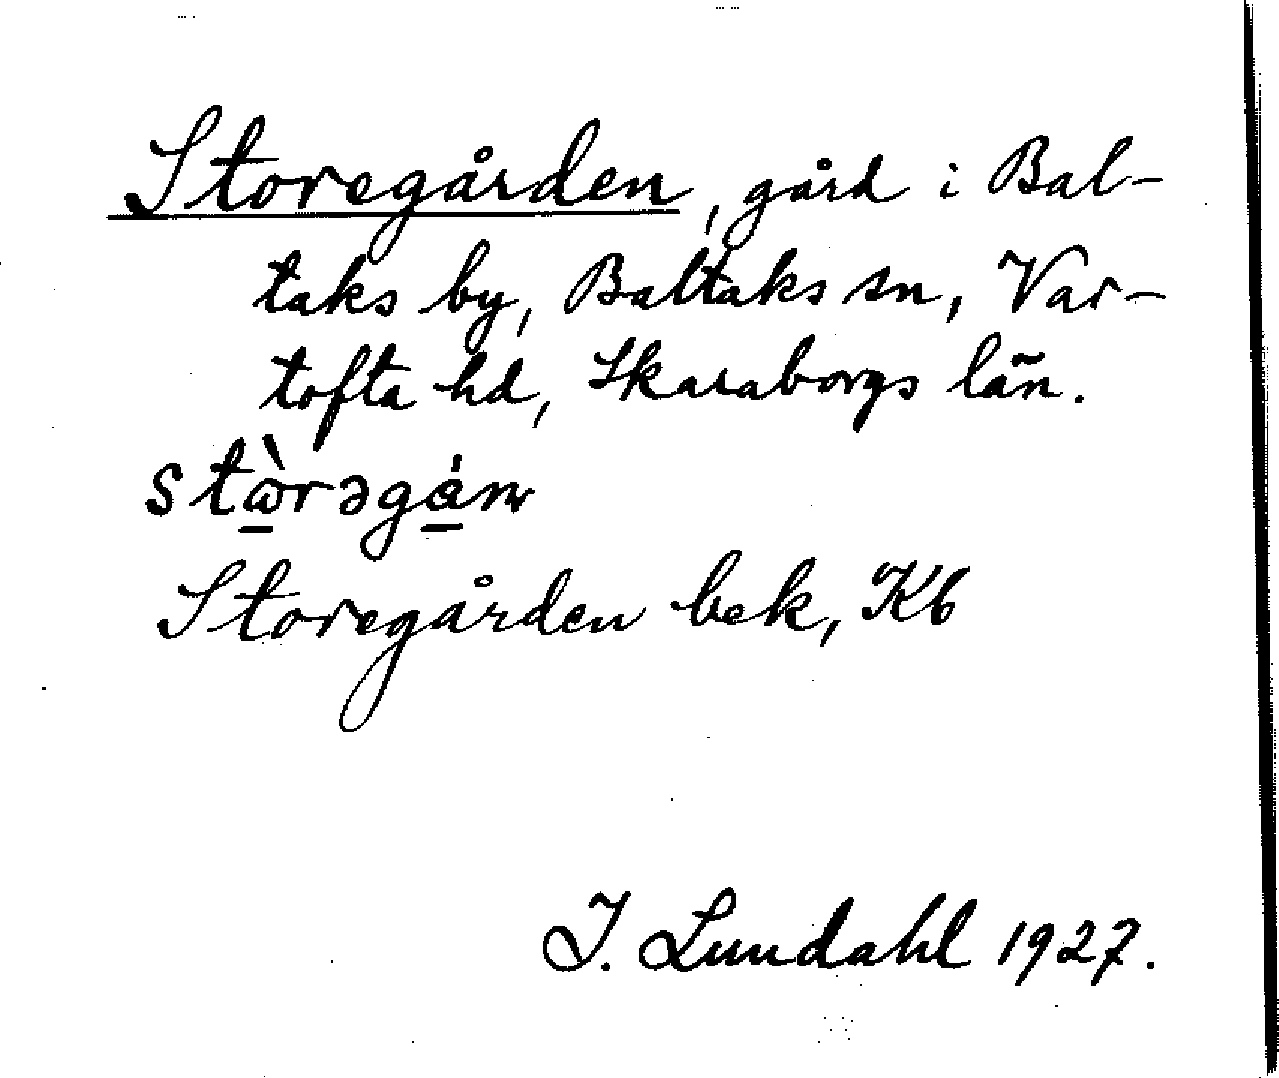 Storegården, gård i Bal-
taks by, Baltaks sn, Var-
tofta hd, Skaraborgs län.
stὼ̱rəgǻ̱n
Storegården bek, Kb
I. Lundahl 1927.